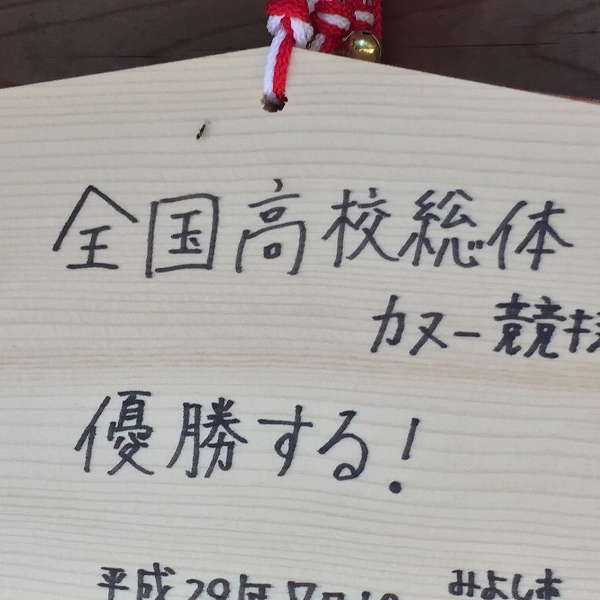 全国高校総体
カヌー競技
優勝する!
平成29年7月
みよし市